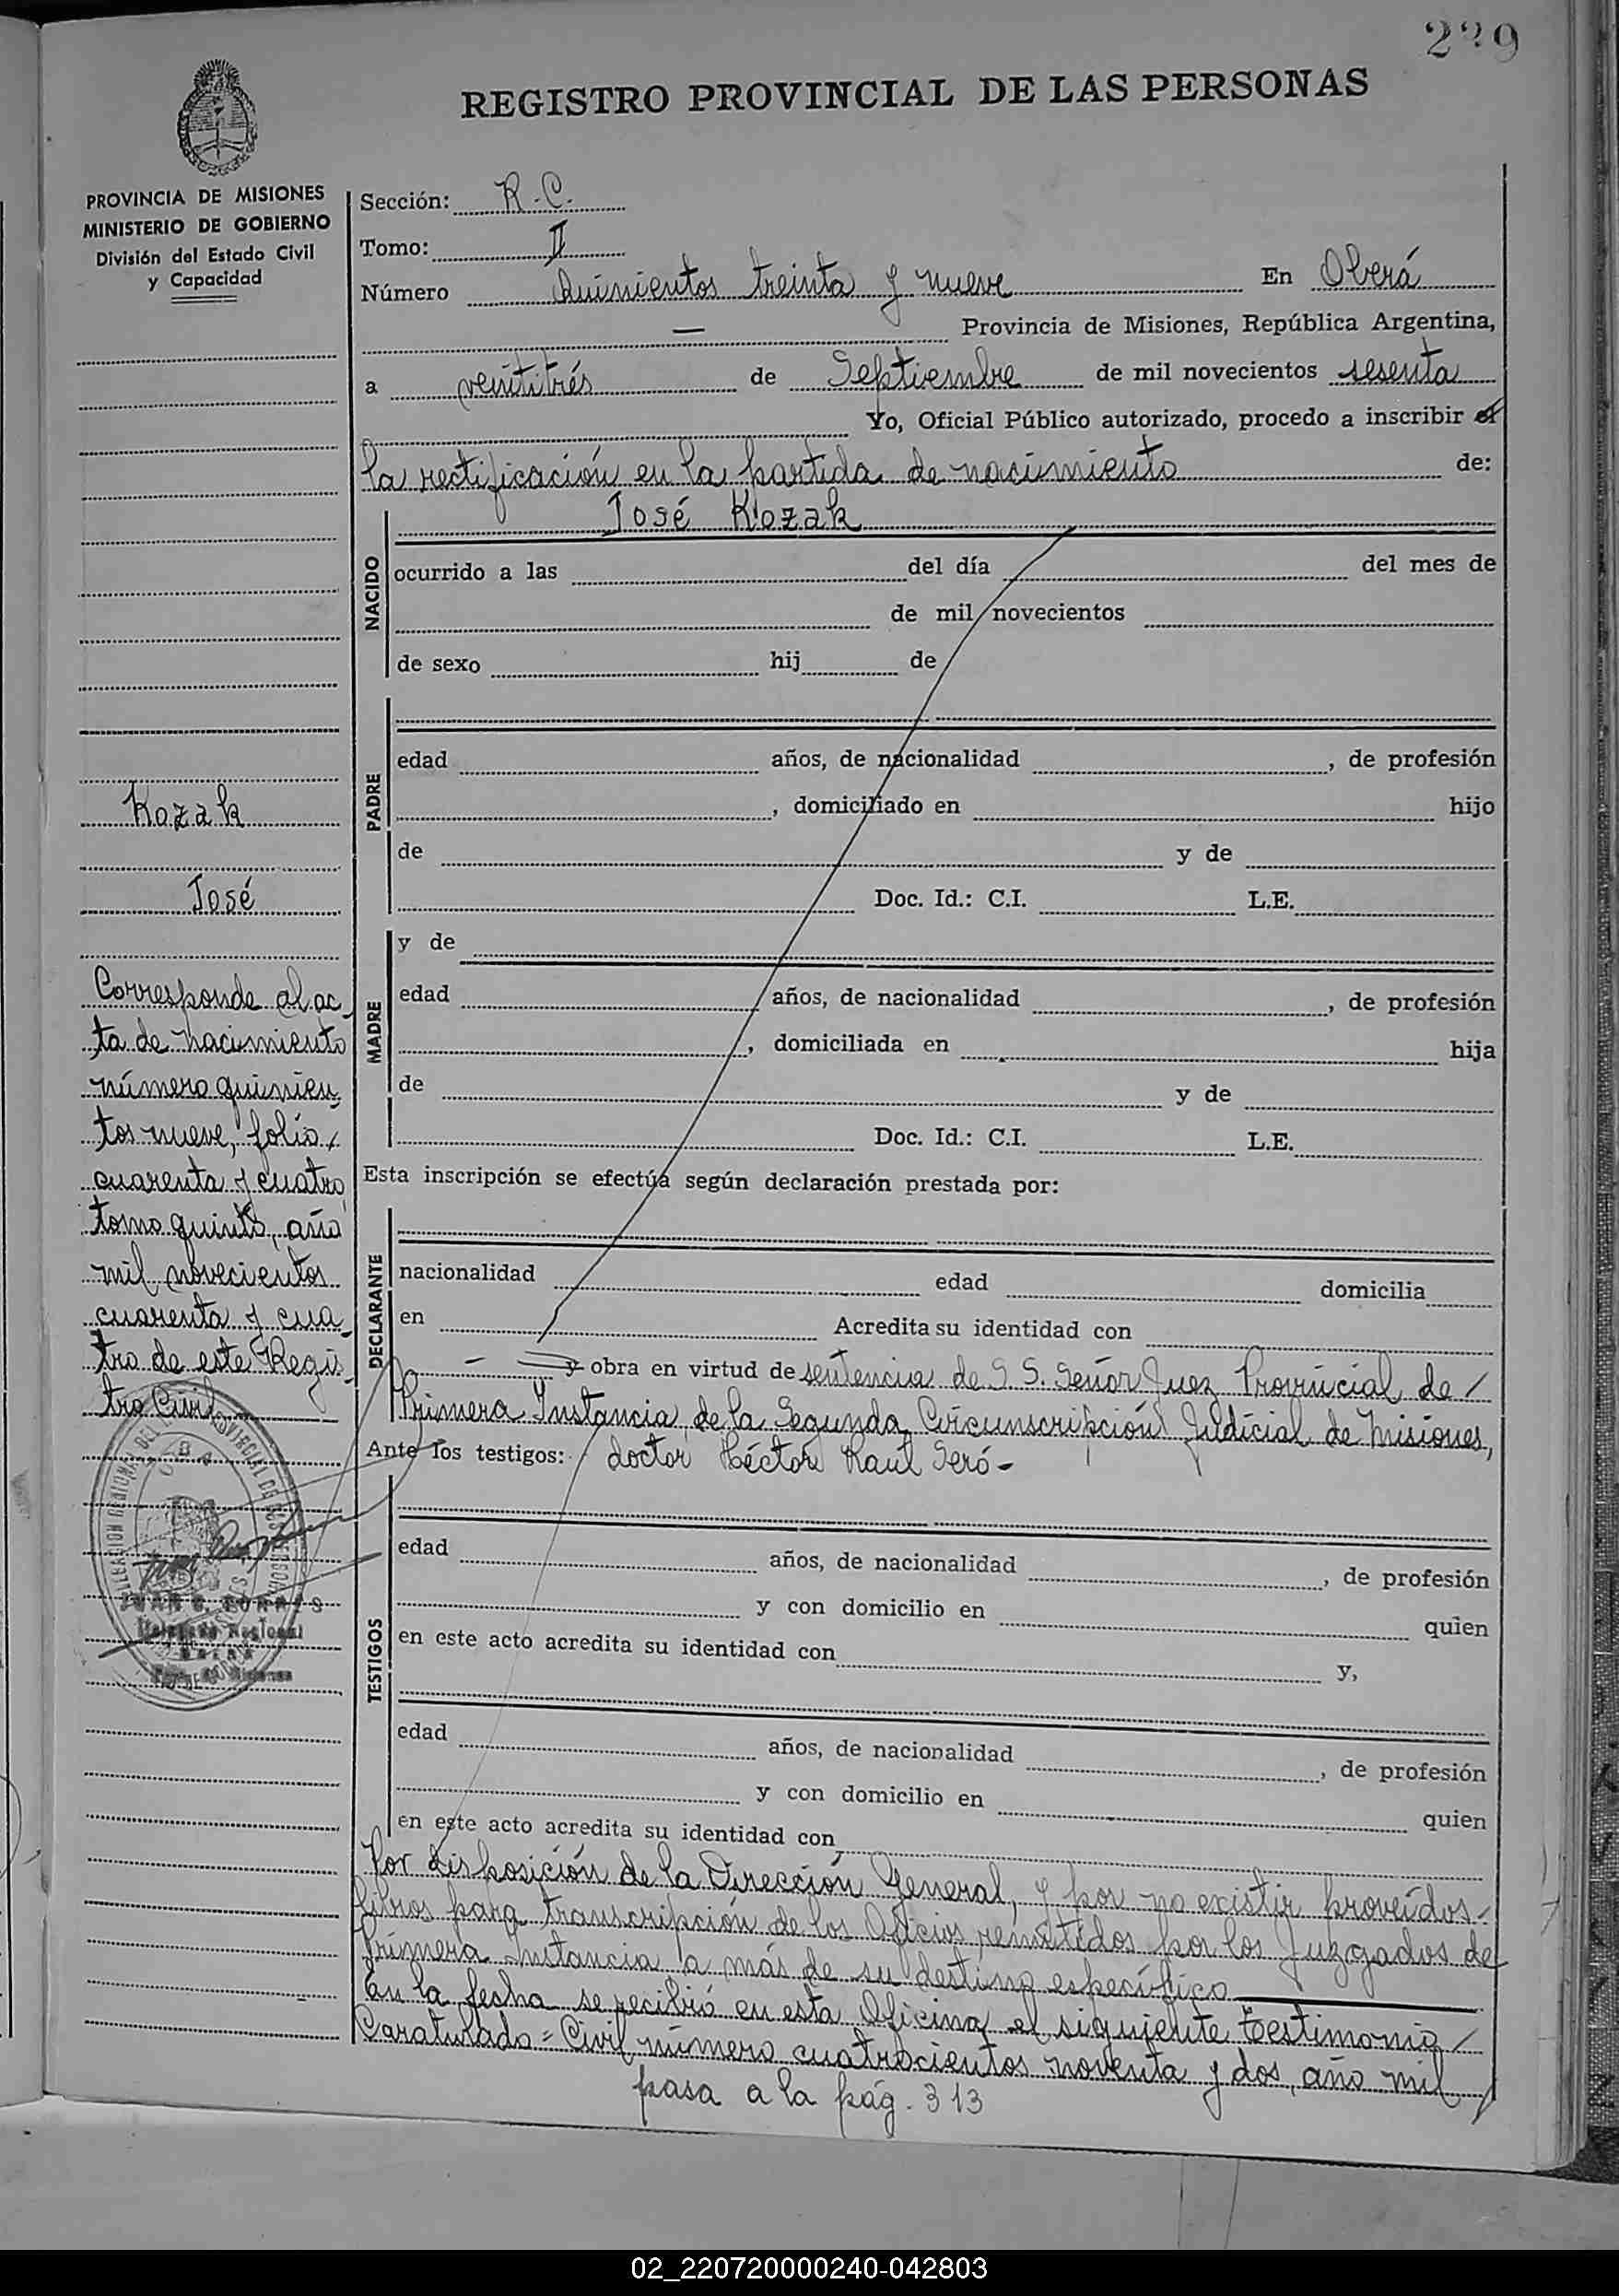 229
REGISTRO PROVINCIAL DE LAS PERSONAS
PROVINCIA DE MISIONES
MINISTERIO DE GOBIERNO
División del Estado Civil
y Capacidad
Sección: R.C.
Tomo: II
Número Quinientos treinta y nueve En Oberá
— Provincia de Misiones, República Argentina,
a veintitrés de Septiembre de mil novecientos sesenta
Yo, Oficial Público autorizado, procedo a inscribir el
la rectificación en la partida de nacimiento de:
José Kozak
NACIDO
ocurrido a las del día del mes de
de mil novecientos
de sexo hij de
PADRE
edad años, de nacionalidad , de profesión
, domiciliado en hijo
de y de
Doc. Id.: C.I. L.E.
MADRE
y de
edad años, de nacionalidad , de profesión
, domiciliada en hija
de y de
Doc. Id.: C.I. L.E.
Esta inscripción se efectúa según declaración prestada por:
DECLARANTE
nacionalidad edad domicilia
en Acredita su identidad con
y obra en virtud de sentencia de S.S. Señor Juez Provincial de /
Primera Instancia de la Segunda Circunscripción Judicial de Misiones,
Ante los testigos: doctor Héctor Raul Seró -
TESTIGOS
edad años, de nacionalidad , de profesión
y con domicilio en quien
en este acto acredita su identidad con y,
edad años, de nacionalidad , de profesión
y con domicilio en quien
en este acto acredita su identidad con
Por disposición de la Dirección General, y por no existir proveídos -
libros para transcripción de los Oficios remitidos por los Juzgados de
Primera Instancia a más de su destino específico
En la fecha se recibió en esta Oficina el siguiente testimonio /
Caratulado = Civil número cuatrocientos noventa y dos, año mil
pasa a la pág. 313
Kozak
José
Corresponde al ac-
ta de nacimiento
número quinien-
tos nueve, folio /
cuarenta y cuatro
tomo quinto, año
mil novecientos
cuarenta y cua-
tro de este Regis-
tro Civil
JUAN C. TORRES
Delegado Regional
OBERA
02_220720000240-042803